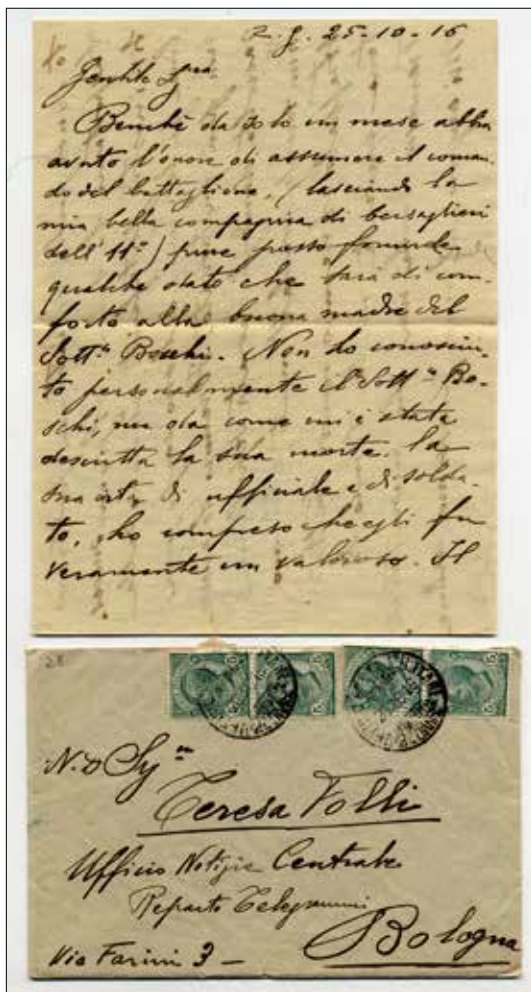 25-10-16
Gentile Sig.ra
Benchè da solo un mese abbia
avuto l'onore di assumere il coman-
do del battaglione, (lasciando la
mia bella compagnia di bersaglieri
dell'11°) pure posso fornirle
qualche dato che sarà di con-
forto alla buona madre del
Sott.n Boschi. Non ho conosciu-
to personalmente il Sott.n Bo-
schi, ma da come mi è stata
descritta la sua morte, la
sua vita di ufficiale e di solda-
to, ho compreso che egli fu
veramente un valoroso. Il
28
N.D
Teresa Folli
Ufficio Notizie Centrale
Reparto Telegrammi
Bologna
Via Farini 3 -